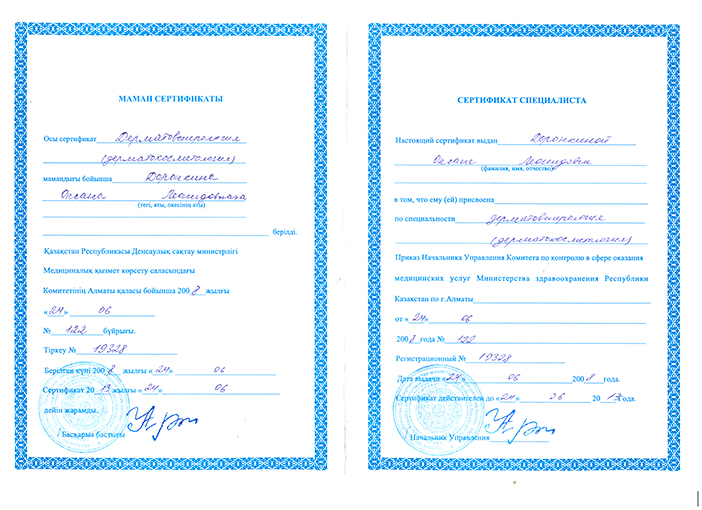 МАМАН СЕРТИФИКАТЫ
Осы сертификат Дерматовенерология
(дерматокосметология)
мамандығы бойынша Доронкина
Оксана Леонидовнаға
(тегі, аты, әкесінің аты)
берілді.
Қазақстан Республикасы Денсаулық сақтау министрлігі
Медициналық қызмет көрсету саласындағы
Комитетінің Алматы қаласы бойынша 2008 жылғы
«24» 06
№ 122 бұйрығы.
Тіркеу № 19328
Берілген күні 2008 жылғы «24» 06
Сертификат 2013 жылғы «24» 06
дейін жарамды.
/ Басқарма бастығы
СЕРТИФИКАТ СПЕЦИАЛИСТА
Настоящий сертификат выдан Доронкиной
Оксане Леонидовне
(фамилия, имя, отчество)
в том, что ему (ей) присвоена
по специальности дерматовенерология
(дерматокосметология)
Приказ Начальника Управления Комитета по контролю в сфере оказания
медицинских услуг Министерства здравоохранения Республики
Казахстан по г.Алматы
от «24» 06
2008 года № 122
Регистрационный № 19328
Дата выдачи «24» 06 2008 года.
Сертификат действителен до «24» 06 2013 года.
/ Начальник Управления